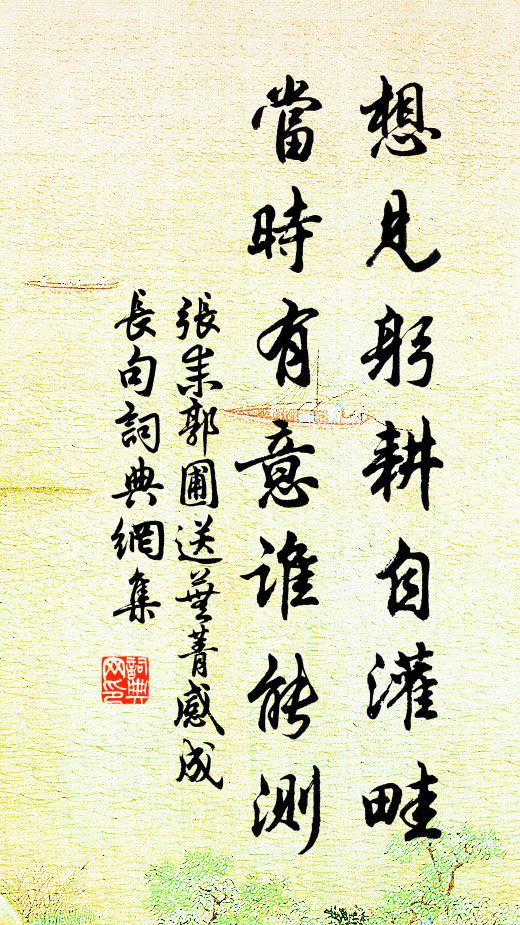 想見躬耕自灌畦
當時有意誰能測
張耒郭圃送蕪菁感成
長句詞典網集
詞典网印